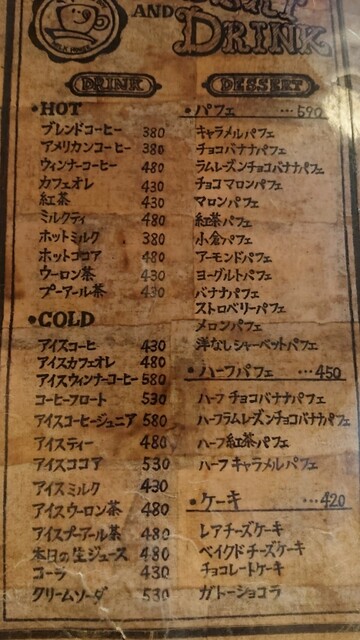 AND
DRINK
DRINK
•HOT
ブレンドコーヒー 380
アメリカンコーヒー 380
ウィンナーコーヒー 480
カフェオレ 430
紅茶 430
ミルクティ 480
ホットミルク 380
ホットココア 480
ウーロン茶 430
プーアール茶 430
•COLD
アイスコーヒ 430
アイスカフェオレ 480
アイスウィンナーコーヒー 580
コーヒーフロート 530
アイスコーヒージュニア 580
アイスティー 480
アイスココア 530
アイスミルク 430
アイスウーロン茶 480
アイスプーアール茶 480
本日の生ジュース 480
コーラ 430
クリームソーダ 530
DESSERT
•パフェ …590
キャラメルパフェ
チョコバナナパフェ
ラムレーズンチョコバナナパフェ
チョコマロンパフェ
マロンパフェ
紅茶パフェ
小倉パフェ
アーモンドパフェ
ヨーグルトパフェ
バナナパフェ
ストロベリーパフェ
メロンパフェ
洋なしシャーベットパフェ
•ハーフパフェ …450
ハーフチョコバナナパフェ
ハーフラムレーズンチョコバナナパフェ
ハーフ紅茶パフェ
ハーフキャラメルパフェ
•ケーキ …420
レアチーズケーキ
ベイクドチーズケーキ
チョコレートケーキ
ガトーショコラ